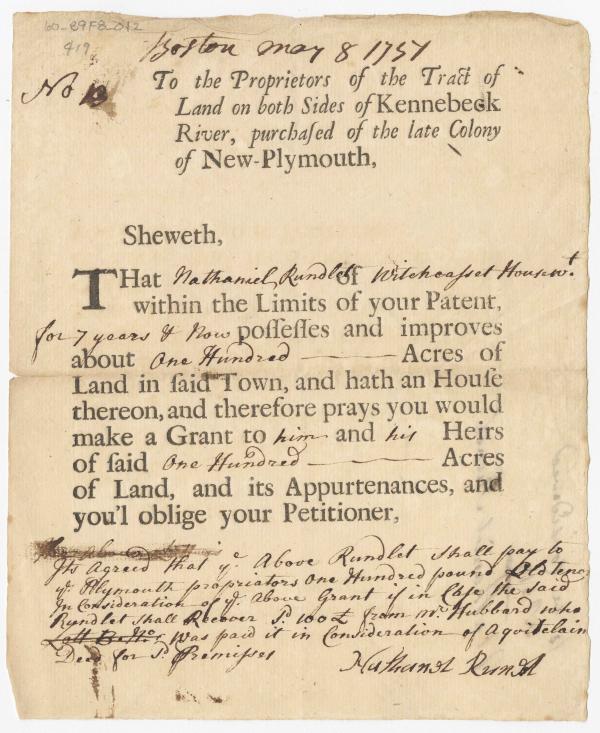 60-89F8-042
419
Boston May 8 1751
No 13
To the Proprietors of the Tract of
Land on both Sides of Kennebeck
River, purchaſed of the late Colony
of New-Plymouth,
Sheweth,
THat Nathaniel Rundlet of Witchcasset Housewt
within the Limits of your Patent,
for 7 years & Now poſſeſſes and improves
about One Hundred Acres of
Land in ſaid Town, and hath an Houſe
thereon, and therefore prays you would
make a Grant to him and his Heirs
of ſaid One Hundred Acres
of Land, and its Appurtenances, and
you'l oblige your Petitioner,
Its Agreed that ye Above Rundlet shall pay to
ye Plymouth propriators One Hundred pound Old tenor
In Consideration of ye Above Grant if in Case the said
Rundlet shall Recover sd 100£ from Wm Hubbard who
was paid it in Consideration of A quitclaim
Deed for sd Premisses
Nathanel Rundlet